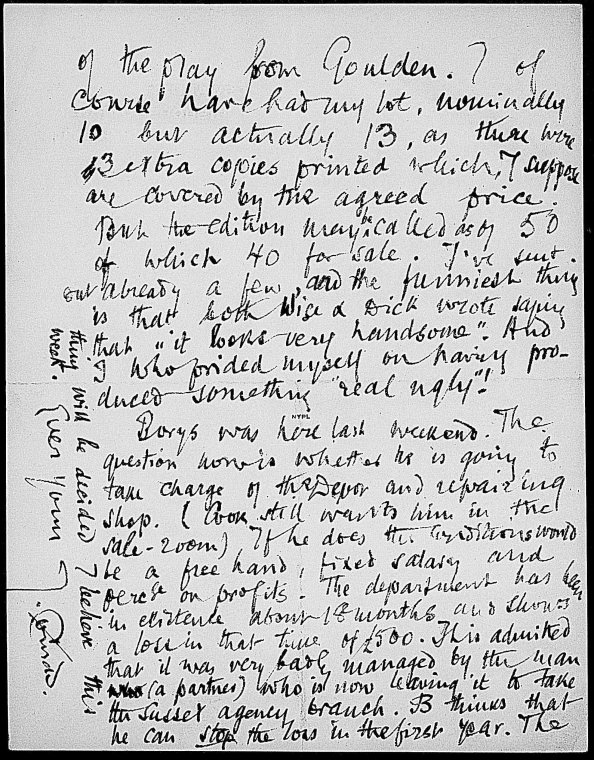 of the play from Goulden. I of
course have had my lot, nominally
10 but actually 13, as there were
3 extra copies printed which, I suppose
are covered by the agreed price.
But the edition may be called as of 50
of which 40 for sale. I've sent
out already a few, and the funniest thing
is that both Wise & Dick wrote saying
that "it looks very handsome". And
I who prided myself on having pro-
duced something "real ugly"!
NYPL
Borys was here last weekend. The
question now is whether he is going to
take charge of the Depot and repairing
shop. (Cook still wants him in the
sale-room) If he does the Conditions would
be a free hand, fixed salary and
percge on profits. The department has been
in existence about 18 months and shows
a loss in that time of £500. It is admitted
that it was very badly managed by the man
who (a partner) who is now leaving it to take
the Sussex agency branch. B thinks that
he can stop the loss in the first year. The
thing will be decided I believe this
week.
Ever yours
J. Conrad.